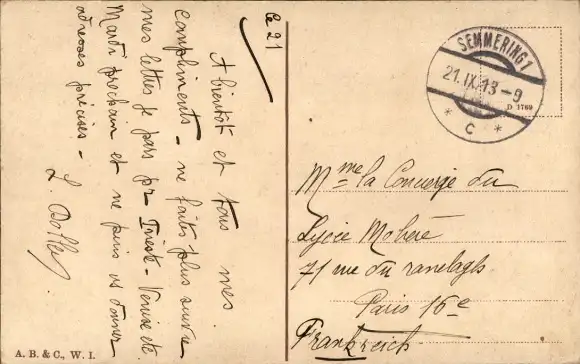 Ce 21
A bientôt et tous mes
compliments - ne faites plus suivre
mes lettres je pars pr Trieste - Venise etc
Mardi prochain et ne puis vs donner
adresses précises -
L. Dolley
SEMMERING 1
21.IX.13-9
* C *
D 1769
Mme la Concierge du
Lycée Molière
71 rue du ranelagh
Paris 16e
Frankreich
A. B. & C., W. I.